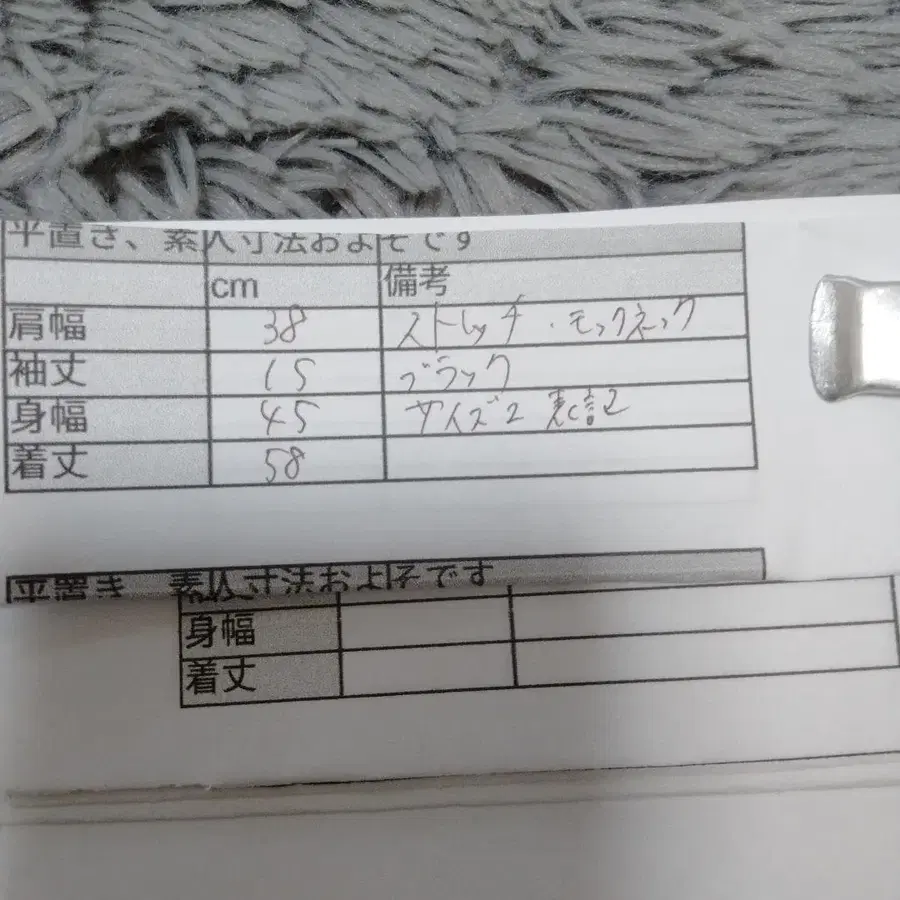 平置き、素人寸法およそです
cm 備考
肩幅 38 ストレッチ・モックネック
袖丈 15 ブラック
身幅 45 サイズ2 表記
着丈 58
平置き、素人寸法およそです
身幅
着丈